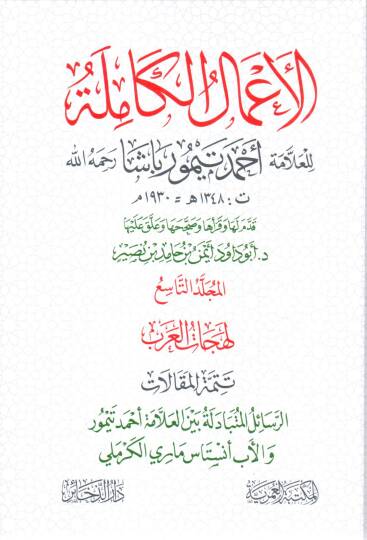 الأعمال الكاملة
للعلامة أحمد تيمور باشا رحمه الله
ت: ١٣٤٨ هـ = ١٩٣٠ م
قدم لها وقرأها وصححها وعلق عليها
د. أبو داود أيمن بن حامد بن نصير
المجلد التاسع
لهجات العرب
تتمة المقالات
الرسائل المتبادلة بين العلامة أحمد تيمور
والأب أنستاس ماري الكرملي
المكتبة العمرية
دار الذخائر